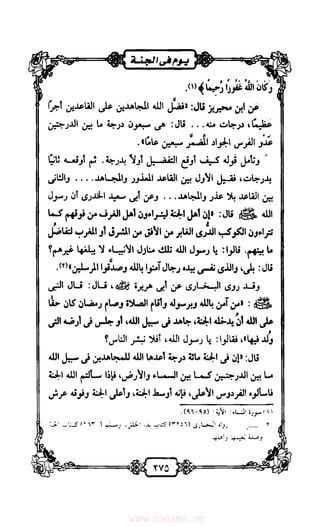 يوم في الجنة
وكان الله غفورا رحيما﴾(١).
عن ابن محيريز قال: «فضل الله المجاهدين على القاعدين أجرا
عظيما، درجات منه... قال: هي سبعون درجة ما بين الدرجتين
عدو الفرس الجواد المضمر سبعين عاما».
وتأمل قوله كيف أوقع التفضيل أولا بدرجة. ثم أوقعه ثانيًا
بدرجات، فقيل الأول بين القاعد المعذور والمجاهد.... والثاني
بين القاعد بلا عذر والمجاهد... وعن أبي سعيد الخدرى أن رسول
الله ﷺ قال: «إن أهل الجنة ليتراءون أهل الغرف من فوقهم كما
تتراءون الكوكب الدرى الغابر من الأفق من المشرق أو المغرب لتفاضل
ما بينهم. قالوا: يا رسول الله تلك منازل الأنبياء لا يبلغها غيرهم؟
قال: بلى، والذى نفسى بيده رجال آمنوا بالله وصدقوا المرسلين»(٢).
وقد روى البخارى عن أبى هريرة ﷺ، قال: قال النبى
ﷺ: «من آمن بالله وبرسوله وأقام الصلاة وصام رمضان كان حقا
على الله أن يدخله الجنة، جاهد فى سبيل الله، أو جلس فى أرضه التى
ولد فيها»، فقالوا: يا رسول الله، أفلا نبشر الناس؟
قال: «إن فى الجنة مائة درجة أعدها الله للمجاهدين فى سبيل الله
ما بين الدرجتين كما بين السماء والأرض، فإذا سألتم الله الجنة
فاسألوه الفردوس الأعلى، فإنه أوسط الجنة، وأعلى الجنة وفوقه عرش
(١) سورة النساء: الآية: (٩٥-٩٦).
٢ رواه البخارى (٣٢٥٦) كتاب بدء الخلق، ومسلم ( كتاب الجنة
وصفة نعيمها وأهلها
٢٧٥
www.ibtesama.com